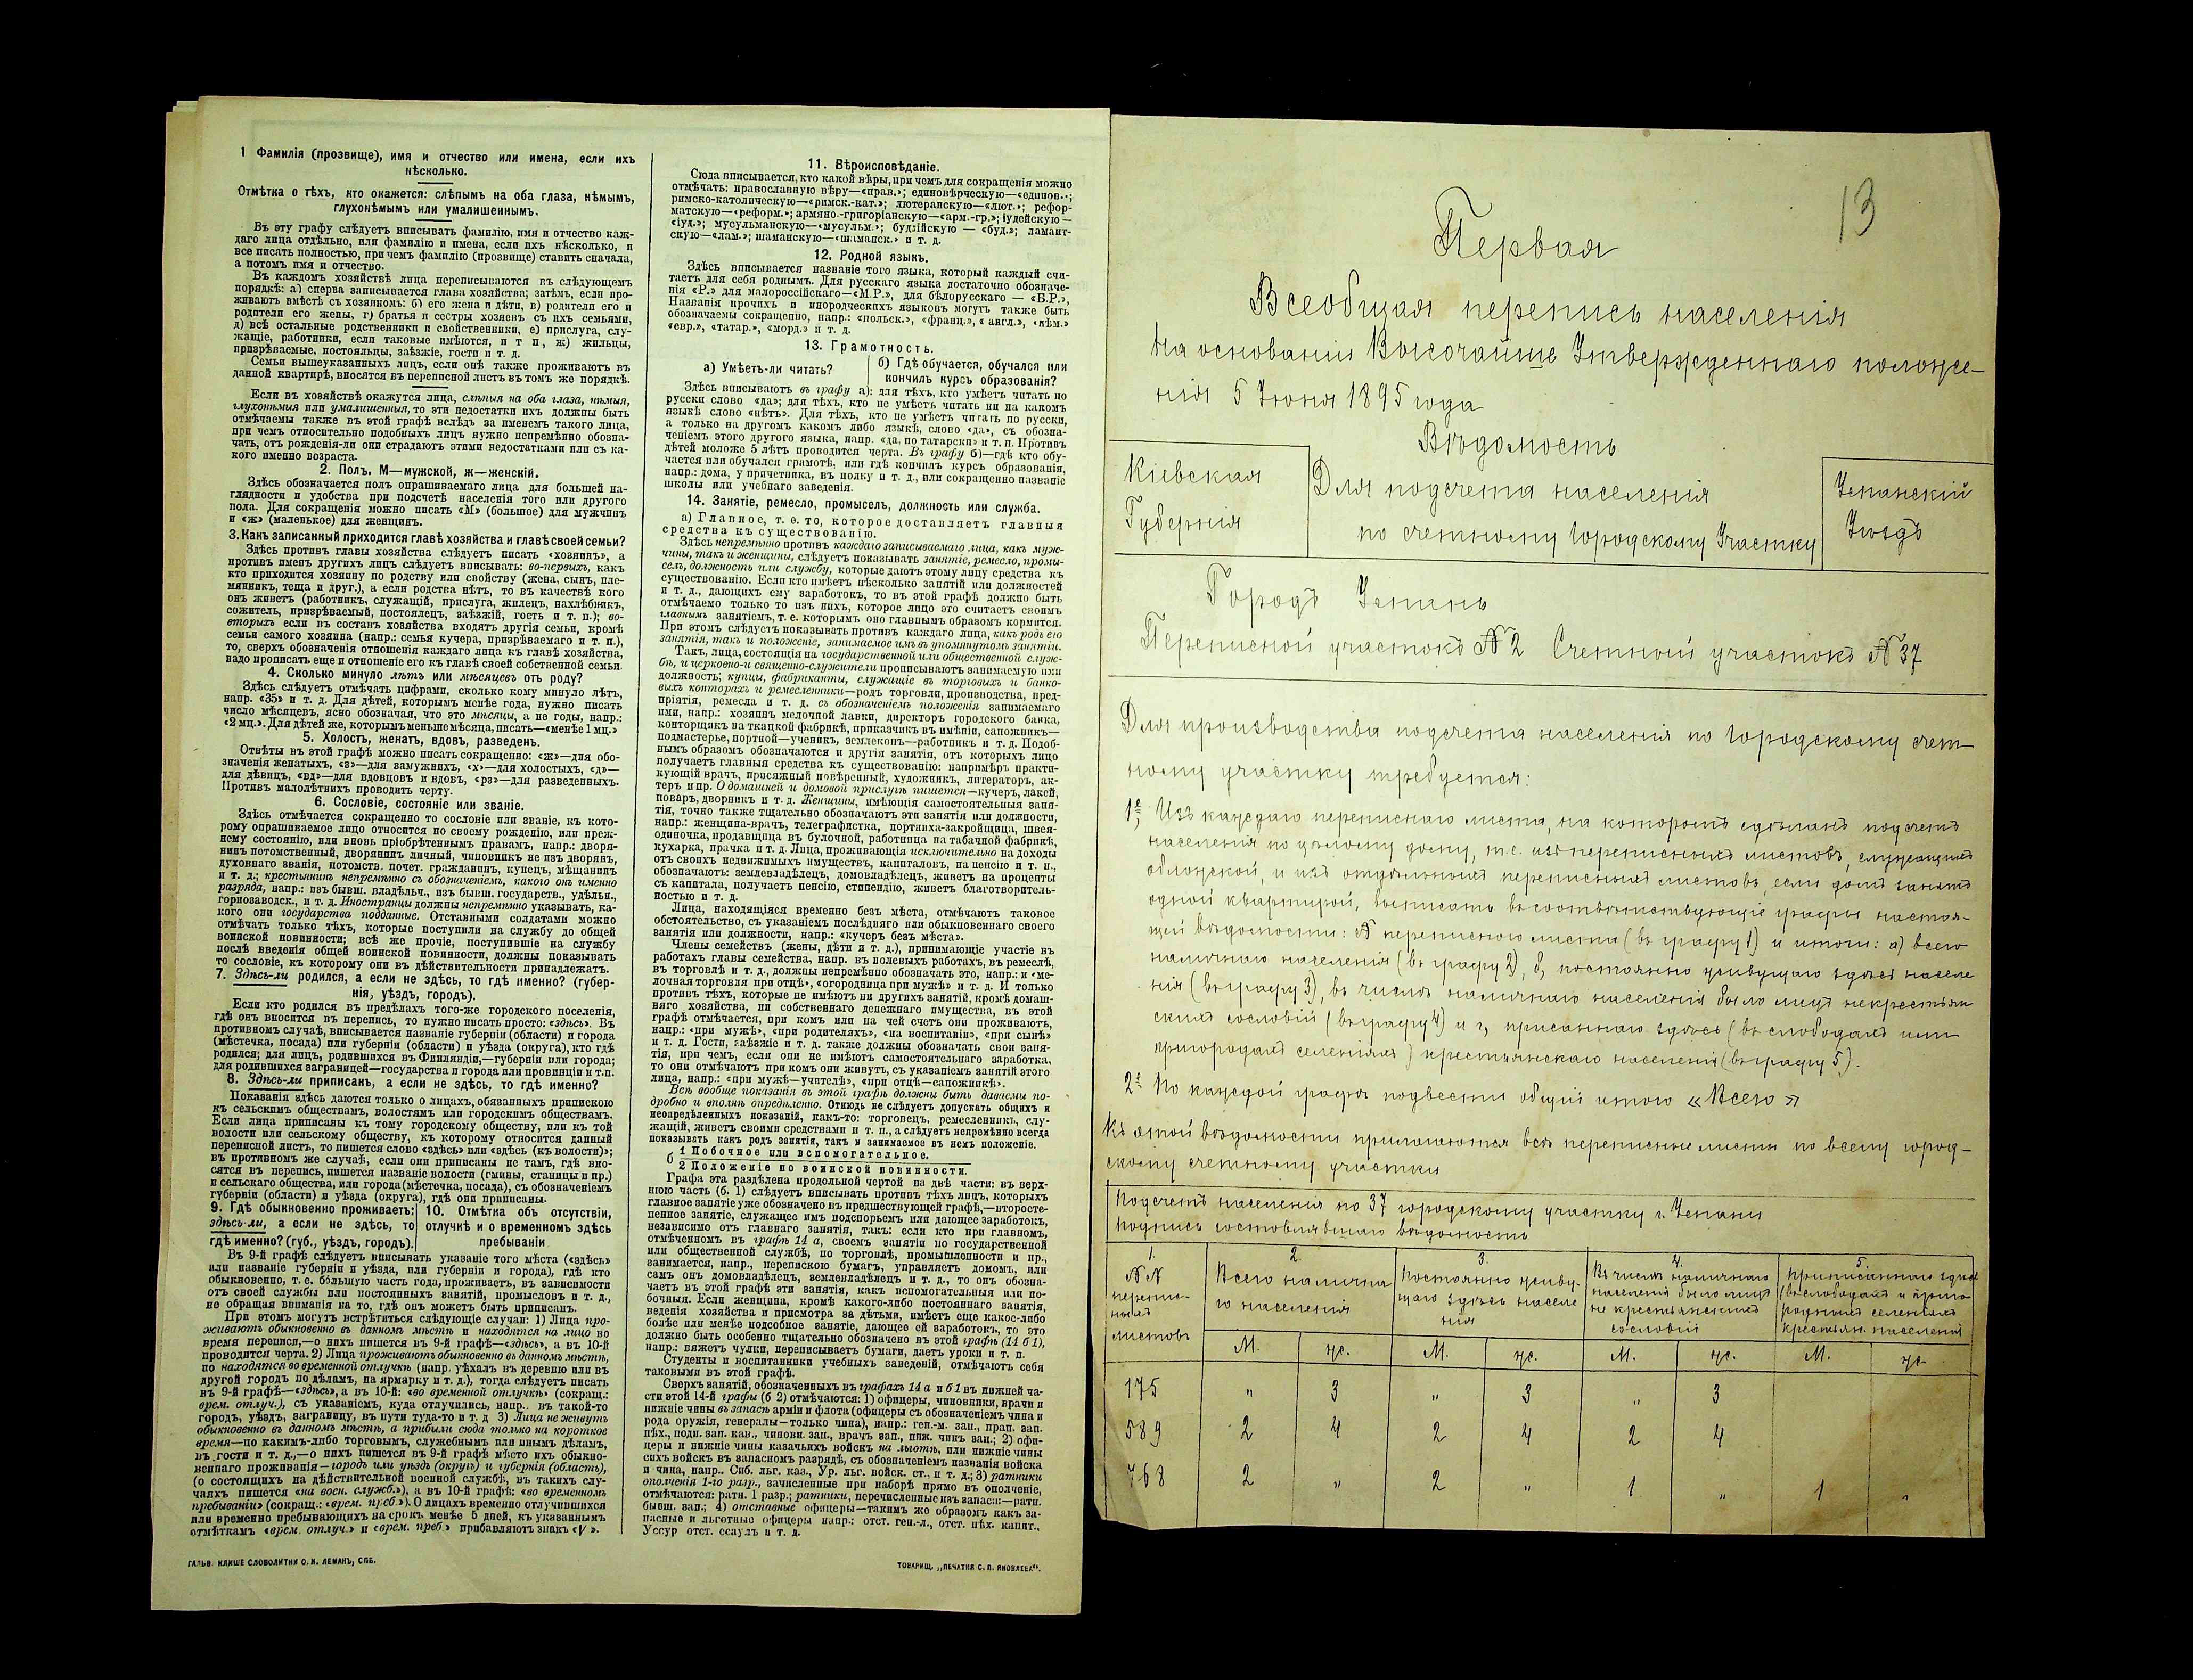 1 Фамилія (прозвище), имя и отчество или имена, если ихъ
нѣсколько.
Отмѣтка о тѣхъ, кто окажется: слѣпымъ на оба глаза, нѣмымъ,
глухонѣмымъ или умалишеннымъ.
Въ эту графу слѣдуетъ вписывать фамилію, имя и отчество каж-
даго лица отдѣльно, или фамилію и имена, если ихъ нѣсколько, и
все писать полностью, при чемъ фамилію (прозвище) ставить сначала,
а потомъ имя и отчество.
Въ каждомъ хозяйствѣ лица переписываются въ слѣдующемъ
порядкѣ: а) сперва записывается глава хозяйства; затѣмъ, если про-
живаютъ вмѣстѣ съ хозяиномъ: б) его жена и дѣти, в) родители его и
родители его жены, г) братья и сестры хозяевъ съ ихъ семьями,
д) всѣ остальные родственники и свойственники, е) прислуга, слу-
жащіе, работники, если таковые имѣются, и т п, ж) жильцы,
призрѣваемые, постояльцы, заѣзжіе, гости и т. д.
Семьи вышеуказанныхъ лицъ, если онѣ также проживаютъ въ
данной квартирѣ, вносятся въ переписной листъ въ томъ же порядкѣ.
Если въ хозяйствѣ окажутся лица, слѣпыя на оба глаза, нѣмыя,
глухонѣмыя или умалишенныя, то эти недостатки ихъ должны быть
отмѣчаемы также въ этой графѣ вслѣдъ за именемъ такого лица,
при чемъ относительно подобныхъ лицъ нужно непремѣнно обозна-
чать, отъ рожденія-ли они страдаютъ этими недостатками или съ ка-
кого именно возраста.
2. Полъ. М—мужской, ж—женскій.
Здѣсь обозначается полъ опрашиваемаго лица для большей на-
глядности и удобства при подсчетѣ населенія того или другого
пола. Для сокращенія можно писать «М» (большое) для мужчинъ
и «ж» (маленькое) для женщинъ.
3. Какъ записанный приходится главѣ хозяйства и главѣ своей семьи?
Здѣсь противъ главы хозяйства слѣдуетъ писать «хозяинъ», а
противъ именъ другихъ лицъ слѣдуетъ вписывать: во-первыхъ, какъ
кто приходится хозяину по родству или свойству (жена, сынъ, пле-
мянникъ, теща и друг.), а если родства нѣтъ, то въ качествѣ кого
онъ живетъ (работникъ, служащій, прислуга, жилецъ, нахлѣбникъ,
сожитель, призрѣваемый, постоялецъ, заѣзжій, гость и т. п.); во-
вторыхъ если въ составъ хозяйства входятъ другія семьи, кромѣ
семьи самого хозяина (напр.: семья кучера, призрѣваемаго и т. п.),
то, сверхъ обозначенія отношенія каждаго лица къ главѣ хозяйства,
надо прописать еще и отношеніе его къ главѣ своей собственной семьи.
4. Сколько минуло лѣтъ или мѣсяцевъ отъ роду?
Здѣсь слѣдуетъ отмѣчать цифрами, сколько кому минуло лѣтъ,
напр. «35» и т. д. Для дѣтей, которымъ менѣе года, нужно писать
число мѣсяцевъ, ясно обозначая, что это мѣсяцы, а не годы, напр.:
«2 мц.». Для дѣтей же, которымъ меньше мѣсяца, писать—«менѣе 1 мц.»
5. Холостъ, женатъ, вдовъ, разведенъ.
Отвѣты въ этой графѣ можно писать сокращенно: «ж»—для обо-
значенія женатыхъ, «з»—для замужнихъ, «х»—для холостыхъ, «д»—
для дѣвицъ, «вд»—для вдовцовъ и вдовъ, «рз»—для разведенныхъ.
Противъ малолѣтнихъ проводить черту.
6. Сословіе, состояніе или званіе.
Здѣсь отмѣчается сокращенно то сословіе или званіе, къ кото-
рому опрашиваемое лицо относится по своему рожденію, или преж-
нему состоянію, или вновь пріобрѣтеннымъ правамъ, напр.: дворя-
нинъ потомственный, дворянинъ личный, чиновникъ не изъ дворянъ,
духовнаго званія, потомств. почет. гражданинъ, купецъ, мѣщанинъ
и т. д.; крестьянинъ непремѣнно съ обозначеніемъ, какого онъ именно
разряда, напр.: изъ бывш. владѣльч., изъ бывш. государств., удѣльн.,
горнозаводск., и т. д. Иностранцы должны непремѣнно указывать, ка-
кого они государства подданные. Отставными солдатами можно
отмѣчать только тѣхъ, которые поступили на службу до общей
воинской повинности; всѣ же прочіе, поступившіе на службу
послѣ введенія общей воинской повинности, должны показывать
то сословіе, къ которому они въ дѣйствительности принадлежатъ.
7. Здѣсь-ли родился, а если не здѣсь, то гдѣ именно? (губер-
нія, уѣздъ, городъ).
Если кто родился въ предѣлахъ того-же городского поселенія,
гдѣ онъ вносится въ перепись, то нужно писать просто: «здѣсь». Въ
противномъ случаѣ, вписывается названіе губерніи (области) и города
(мѣстечка, посада) или губерніи (области) и уѣзда (округа), кто гдѣ
родился; для лицъ, родившихся въ Финляндіи,—губерніи или города;
для родившихся заграницей—государства и города или провинціи и т.п.
8. Здѣсь-ли приписанъ, а если не здѣсь, то гдѣ именно?
Показанія здѣсь даются только о лицахъ, обязанныхъ припискою
къ сельскимъ обществамъ, волостямъ или городскимъ обществамъ.
Если лица приписаны къ тому городскому обществу, или къ той
волости или сельскому обществу, къ которому относится данный
переписной листъ, то пишется слово «здѣсь» или «здѣсь (къ волости)»;
въ противномъ же случаѣ, если они приписаны не тамъ, гдѣ вно-
сятся въ перепись, пишется названіе волости (гмины, станицы и пр.)
и сельскаго общества, или города (мѣстечка, посада), съ обозначеніемъ
губерніи (области) и уѣзда (округа), гдѣ они приписаны.
9. Гдѣ обыкновенно проживаетъ:
здѣсь-ли, а если не здѣсь, то
гдѣ именно? (губ., уѣздъ, городъ).
10. Отмѣтка объ отсутствіи,
отлучкѣ и о временномъ здѣсь
пребываніи
Въ 9-й графѣ слѣдуетъ вписывать указаніе того мѣста («здѣсь»
или названіе губерніи и уѣзда, или губерніи и города), гдѣ кто
обыкновенно, т. е. бо́льшую часть года, проживаетъ, въ зависимости
отъ своей службы или постоянныхъ занятій, промысловъ и т. д.,
не обращая вниманія на то, гдѣ онъ можетъ быть приписанъ.
При этомъ могутъ встрѣтиться слѣдующіе случаи: 1) Лица про-
живаютъ обыкновенно въ данномъ мѣстѣ и находятся на лицо во
время переписи,—о нихъ пишется въ 9-й графѣ—«здѣсь», а въ 10-й
проводится черта. 2) Лица проживаютъ обыкновенно въ данномъ мѣстѣ,
но находятся во временной отлучкѣ (напр. уѣхалъ въ деревню или въ
другой городъ по дѣламъ, на ярмарку и т. д.), тогда слѣдуетъ писать
въ 9-й графѣ—«здѣсь», а въ 10-й: «во временной отлучкѣ» (сокращ.:
врем. отлуч.), съ указаніемъ, куда отлучились, напр.. въ такой-то
городъ, уѣздъ, заграницу, въ пути туда-то и т. д 3) Лица не живутъ
обыкновенно въ данномъ мѣстѣ, а прибыли сюда только на короткое
время—по какимъ-либо торговымъ, служебнымъ или инымъ дѣламъ,
въ гости и т. д.,—о нихъ пишется въ 9-й графѣ мѣсто ихъ обыкно-
веннаго проживанія—городъ или уѣздъ (округъ) и губернія (область),
(о состоящихъ на дѣйствительной военной службѣ, въ такихъ слу-
чаяхъ пишется «на воен. служб.»), а въ 10-й графѣ: «во временномъ
пребываніи» (сокращ.: «врем. преб.»). О лицахъ временно отлучившихся
или временно пребывающихъ на срокъ менѣе 5 дней, къ указаннымъ
отмѣткамъ «врем. отлуч.» и «врем. преб.» прибавляютъ знакъ «V».
ГАЛЬВ. КЛИШЕ СЛОВОЛИТНИ О. И. ЛЕМАНЪ, СПБ.
11. Вѣроисповѣданіе.
Сюда вписывается, кто какой вѣры, при чемъ для сокращенія можно
отмѣчать: православную вѣру—«прав.»; единовѣрческую—«единов.»;
римско-католическую—«римск.-кат.»; лютеранскую—«лют.»; рефор-
матскую—«реформ.»; армяно-григоріанскую—«арм.-гр.»; іудейскую—
«іуд.»; мусульманскую—«мусульм.»; буддійскую — «буд.»; ламаит-
скую—«лам.»; шаманскую—«шаманск.» и т. д.
12. Родной языкъ.
Здѣсь вписывается названіе того языка, который каждый счи-
таетъ для себя роднымъ. Для русскаго языка достаточно обозначе-
нія «Р.» для малороссійскаго—«М.Р.», для бѣлорусскаго — «Б.Р.»,
Названія прочихъ и инородческихъ языковъ могутъ также быть
обозначаемы сокращенно, напр.: «польск.», «франц.», «англ.», «нѣм.»
«евр.», «татар.», «морд.» и т. д.
13. Грамотность.
а) Умѣетъ-ли читать?
б) Гдѣ обучается, обучался или
кончилъ курсъ образованія?
Здѣсь вписываютъ въ графу а): для тѣхъ, кто умѣетъ читать по
русски слово «да»; для тѣхъ, кто не умѣетъ читать ни на какомъ
языкѣ слово «нѣтъ». Для тѣхъ, кто не умѣетъ читать по русски,
а только на другомъ какомъ либо языкѣ, слово «да», съ обозна-
ченіемъ этого другого языка, напр. «да, по татарски» и т. п. Противъ
дѣтей моложе 5 лѣтъ проводится черта. Въ графу б)—гдѣ кто обу-
чается или обучался грамотѣ, или гдѣ кончилъ курсъ образованія,
напр.: дома, у причетника, въ полку и т. д., или сокращенно названіе
школы или учебнаго заведенія.
14. Занятіе, ремесло, промыселъ, должность или служба.
а) Главное, т. е. то, которое доставляетъ главныя
средства къ существованію.
Здѣсь непремѣнно противъ каждаго записываемаго лица, какъ муж-
чины, такъ и женщины, слѣдуетъ показывать занятіе, ремесло, промы-
селъ, должность или службу, которые даютъ этому лицу средства къ
существованію. Если кто имѣетъ нѣсколько занятій или должностей
и т. д., дающихъ ему заработокъ, то въ этой графѣ должно быть
отмѣчаемо только то изъ нихъ, которое лицо это считаетъ своимъ
главнымъ занятіемъ, т. е. которымъ оно главнымъ образомъ кормится.
При этомъ слѣдуетъ показывать противъ каждаго лица, какъ родъ его
занятія, такъ и положеніе, занимаемое имъ въ упомянутомъ занятіи.
Такъ, лица, состоящія на государственной или общественной служ-
бѣ, и церковно-и священно-служители прописываютъ занимаемую ими
должность; купцы, фабриканты, служащіе въ торговыхъ и банко-
выхъ конторахъ и ремесленники—родъ торговли, производства, пред-
пріятія, ремесла и т. д. съ обозначеніемъ положенія занимаемаго
ими, напр.: хозяинъ мелочной лавки, директоръ городского банка,
конторщикъ на ткацкой фабрикѣ, приказчикъ въ имѣніи, сапожникъ—
подмастерье, портной—ученикъ, землекопъ—работникъ и т. д. Подоб-
нымъ образомъ обозначаются и другія занятія, отъ которыхъ лицо
получаетъ главныя средства къ существованію: напримѣръ практи-
кующій врачъ, присяжный повѣренный, художникъ, литераторъ, ак-
теръ и пр. О домашней и домовой прислугѣ пишется—кучеръ, лакей,
поваръ, дворникъ и т. д. Женщины, имѣющія самостоятельныя заня-
тія, точно также тщательно обозначаютъ эти занятія или должности,
напр.: женщина-врачъ, телеграфистка, портниха-закройщица, швея-
одиночка, продавщица въ булочной, работница на табачной фабрикѣ,
кухарка, прачка и т. д. Лица, проживающія исключительно на доходы
отъ своихъ недвижимыхъ имуществъ, капиталовъ, на пенсію и т. п.,
обозначаютъ: землевладѣлецъ, домовладѣлецъ, живетъ на проценты
съ капитала, получаетъ пенсію, стипендію, живетъ благотворитель-
ностью и т. д.
Лица, находящіяся временно безъ мѣста, отмѣчаютъ таковое
обстоятельство, съ указаніемъ послѣдняго или обыкновеннаго своего
занятія или должности, напр.: «кучеръ безъ мѣста».
Члены семействъ (жены, дѣти и т. д.), принимающіе участіе въ
работахъ главы семейства, напр. въ полевыхъ работахъ, въ ремеслѣ,
въ торговлѣ и т. д., должны непремѣнно обозначать это, напр.: и «ме-
лочная торговля при отцѣ», «огородница при мужѣ» и т. д. И только
противъ тѣхъ, которые не имѣютъ ни другихъ занятій, кромѣ домаш-
няго хозяйства, ни собственнаго денежнаго имущества, въ этой
графѣ отмѣчается, при комъ или на чей счетъ они проживаютъ,
напр.: «при мужѣ», «при родителяхъ», «на воспитаніи», «при сынѣ»
и т. д. Гости, заѣзжіе и т. д. также должны обозначать свои заня-
тія, при чемъ, если они не имѣютъ самостоятельнаго заработка,
то они отмѣчаютъ при комъ они живутъ, съ указаніемъ занятій этого
лица, напр.: «при мужѣ—учителѣ», «при отцѣ—сапожникѣ».
Всѣ вообще показанія въ этой графѣ должны быть даваемы по-
дробно и вполнѣ опредѣленно. Отнюдь не слѣдуетъ допускать общихъ и
неопредѣленныхъ показаній, какъ-то: торговецъ, ремесленникъ, слу-
жащій, живетъ своими средствами и т. п., а слѣдуетъ непремѣнно всегда
показывать какъ родъ занятія, такъ и занимаемое въ немъ положеніе.
б 1 Побочное или вспомогательное.
2 Положеніе по воинской повинности.
Графа эта раздѣлена продольной чертой на двѣ части: въ верх-
нюю часть (б. 1) слѣдуетъ вписывать противъ тѣхъ лицъ, которыхъ
главное занятіе уже обозначено въ предшествующей графѣ,—второсте-
пенное занятіе, служащее имъ подспорьемъ или дающее заработокъ,
независимо отъ главнаго занятія, такъ: если кто при главномъ,
отмѣченномъ въ графѣ 14 а, своемъ занятіи по государственной
или общественной службѣ, по торговлѣ, промышленности и пр.,
занимается, напр., перепискою бумагъ, управляетъ домомъ, или
самъ онъ домовладѣлецъ, землевладѣлецъ и т. д., то онъ обозна-
чаетъ въ этой графѣ эти занятія, какъ вспомогательныя или по-
бочныя. Если женщина, кромѣ какого-либо постояннаго занятія,
веденія хозяйства и присмотра за дѣтьми, имѣетъ еще какое-либо
болѣе или менѣе подсобное занятіе, дающее ей заработокъ, то это
должно быть особенно тщательно обозначено въ этой графѣ (14 б 1),
напр.: вяжетъ чулки, переписываетъ бумаги, даетъ уроки и т. п.
Студенты и воспитанники учебныхъ заведеній, отмѣчаютъ себя
таковыми въ этой графѣ.
Сверхъ занятій, обозначенныхъ въ графахъ 14 а и б 1 въ нижней ча-
сти этой 14-й графы (б 2) отмѣчаются: 1) офицеры, чиновники, врачи и
нижніе чины въ запасѣ арміи и флота (офицеры съ обозначеніемъ чина и
рода оружія, генералы—только чина), напр.: ген.-м. зап., прап. зап.
пѣх., подп. зап. кав., чиновн. зап., врачъ зап., ниж. чинъ зап.; 2) офи-
церы и нижніе чины казачьихъ войскъ на льготѣ, или нижніе чины
сихъ войскъ въ запасномъ разрядѣ, съ обозначеніемъ названія войска
и чина, напр.. Сиб. льг. каз., Ур. льг. войск. ст., и т. д.; 3) ратники
ополченія 1-го разр., зачисленные при наборѣ прямо въ ополченіе,
отмѣчаются: ратн. 1 разр.; ратники, перечисленные изъ запаса:—ратн.
бывш. зап.; 4) отставные офицеры—такимъ же образомъ какъ за-
пасные и льготные офицеры напр.: отст. ген.-л., отст. пѣх. капит.,
Уссур отст. есаулъ и т. д.
ТОВАРИЩ. „ПЕЧАТНЯ С. П. ЯКОВЛЕВА".
13
Первая
Всеобщая перепись населенія
На основаніи Высочайше Утвержденнаго положе-
нія 5 Іюня 1895 года
Вѣдомость
Кіевская
Губернія
Для подсчета населенія
по счетному Городскому Участку
Уманскій
Уѣздъ
Городъ Умань
Переписной участокъ № 2 Счетный участокъ № 37
Для производства подсчета населенія по городскому счет-
ному участку требуется:
1е, Изъ каждаго переписнаго листа, на которомъ сдѣланъ подсчетъ
населенія по цѣлому дому, т.е. изъ переписныхъ листовъ, служащихъ
обложкой, и изъ отдѣльныхъ переписныхъ листовъ, если домъ занятъ
одной квартирой, выписать въ соотвѣтствующіе графы настоя-
щей вѣдомости: № переписного листа (въ графу 1) и итоги: а) всего
наличнаго населенія (въ графу 2), б, постоянно живущаго здѣсь населе
нія (въ графу 3), въ числѣ наличнаго населенія было лицъ некрестьян
скихъ сословій (въ графу 4) и г, приписаннаго здѣсь (въ слободахъ или
пригородахъ селеніяхъ) крестьянскаго населенія (въ графу 5).
2е По каждой графѣ подвести общій итогъ «Всего»
Къ этой вѣдомости прилагаются всѣ переписные листы по всему город-
скому счетному участку
Подсчетъ населенія по 37 городскому участку г. Умани
Подпись составлявшаго вѣдомость
1. 2. 3. 4. 5.
№№
перепи-
сныхъ
листовъ
Всего налична
го населенія
Постоянно живу-
щаго здѣсь населе
нія
Въ числѣ наличнаго
населенія было лицъ
не крестьянскихъ
сословій
Приписаннаго здѣсь
(въ слободахъ и приго
родныхъ селеніяхъ
крестьян. населенія
М. ж. М. ж. М. ж. М. ж.
175 " 3 " 3 " 3
589 2 4 2 4 2 4
768 2 " 2 " 1 " 1 "